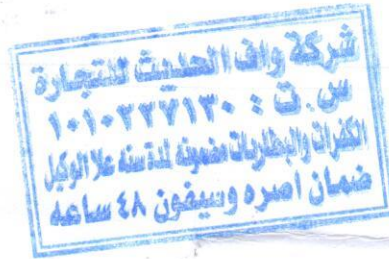 شركة واف الحديث للتجارة
س . ت : ١٠١٠٢٢٧١٣٠
الكفرات والبطاريات مضمونة لمدة سنه علا الوكيل
ضمان اصره وسيفون ٤٨ ساعه